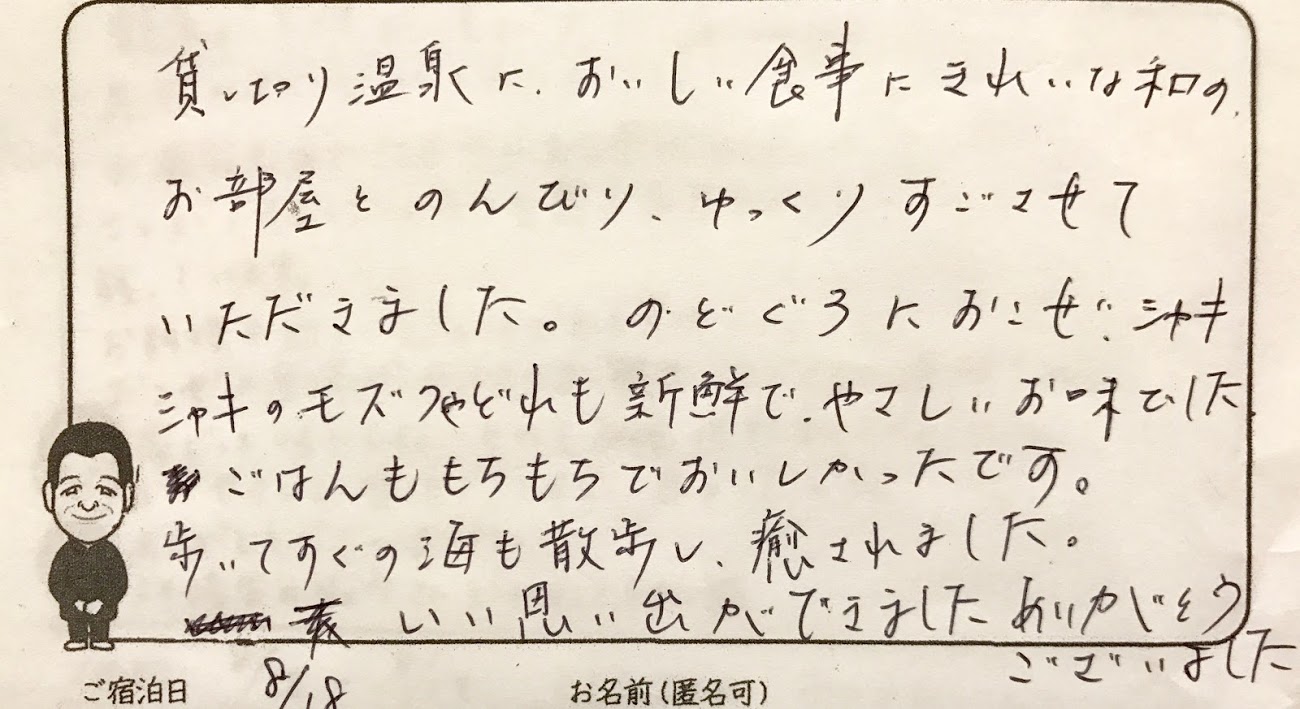 貸し切り温泉に、おいしい食事にきれいな和の、
お部屋とのんびり、ゆっくりすごさせて
いただきました。のどぐろにおこぜ、シャキ
シャキのモズクやどれも新鮮で、やさしいお味でした。
ごはんももちもちでおいしかったです。
歩いてすぐの海も散歩し、癒されました。
いい思い出ができましたありがとう
ございました
ご宿泊日 8/18 お名前(匿名可)